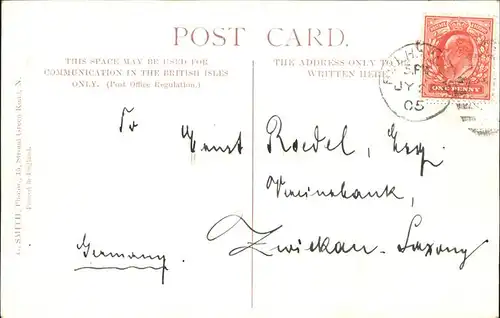 POST CARD.
THIS SPACE MAY BE USED FOR
COMMUNICATION IN THE BRITISH ISLES
ONLY. (Post Office Regulation.)
THE ADDRESS ONLY TO BE
WRITTEN HERE
ONE PENNY
5.PM
JY
05
To Ernst Roedel, Esq.
Vereinsbank,
Zwickau - Saxony
Germany.
SMITH, Photo., 15, Stroud Green Road, N.
Printed in England.